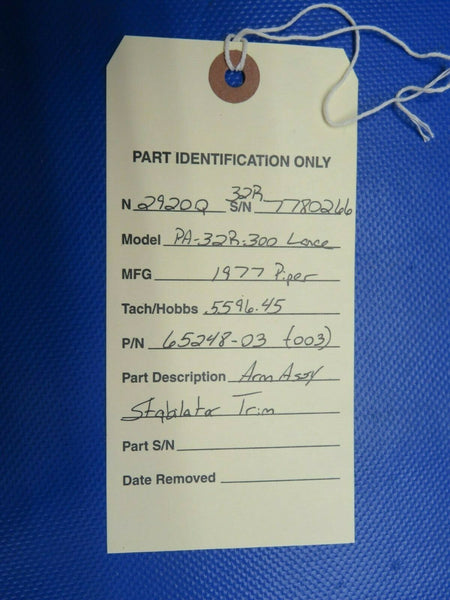 PART IDENTIFICATION ONLY
N 2920Q 32R S/N 7780266
Model PA-32R-300 Lance
MFG 1977 Piper
Tach/Hobbs 5596.45
P/N 65248-03 (003)
Part Description Arm Assy
Stabilator Trim
Part S/N
Date Removed